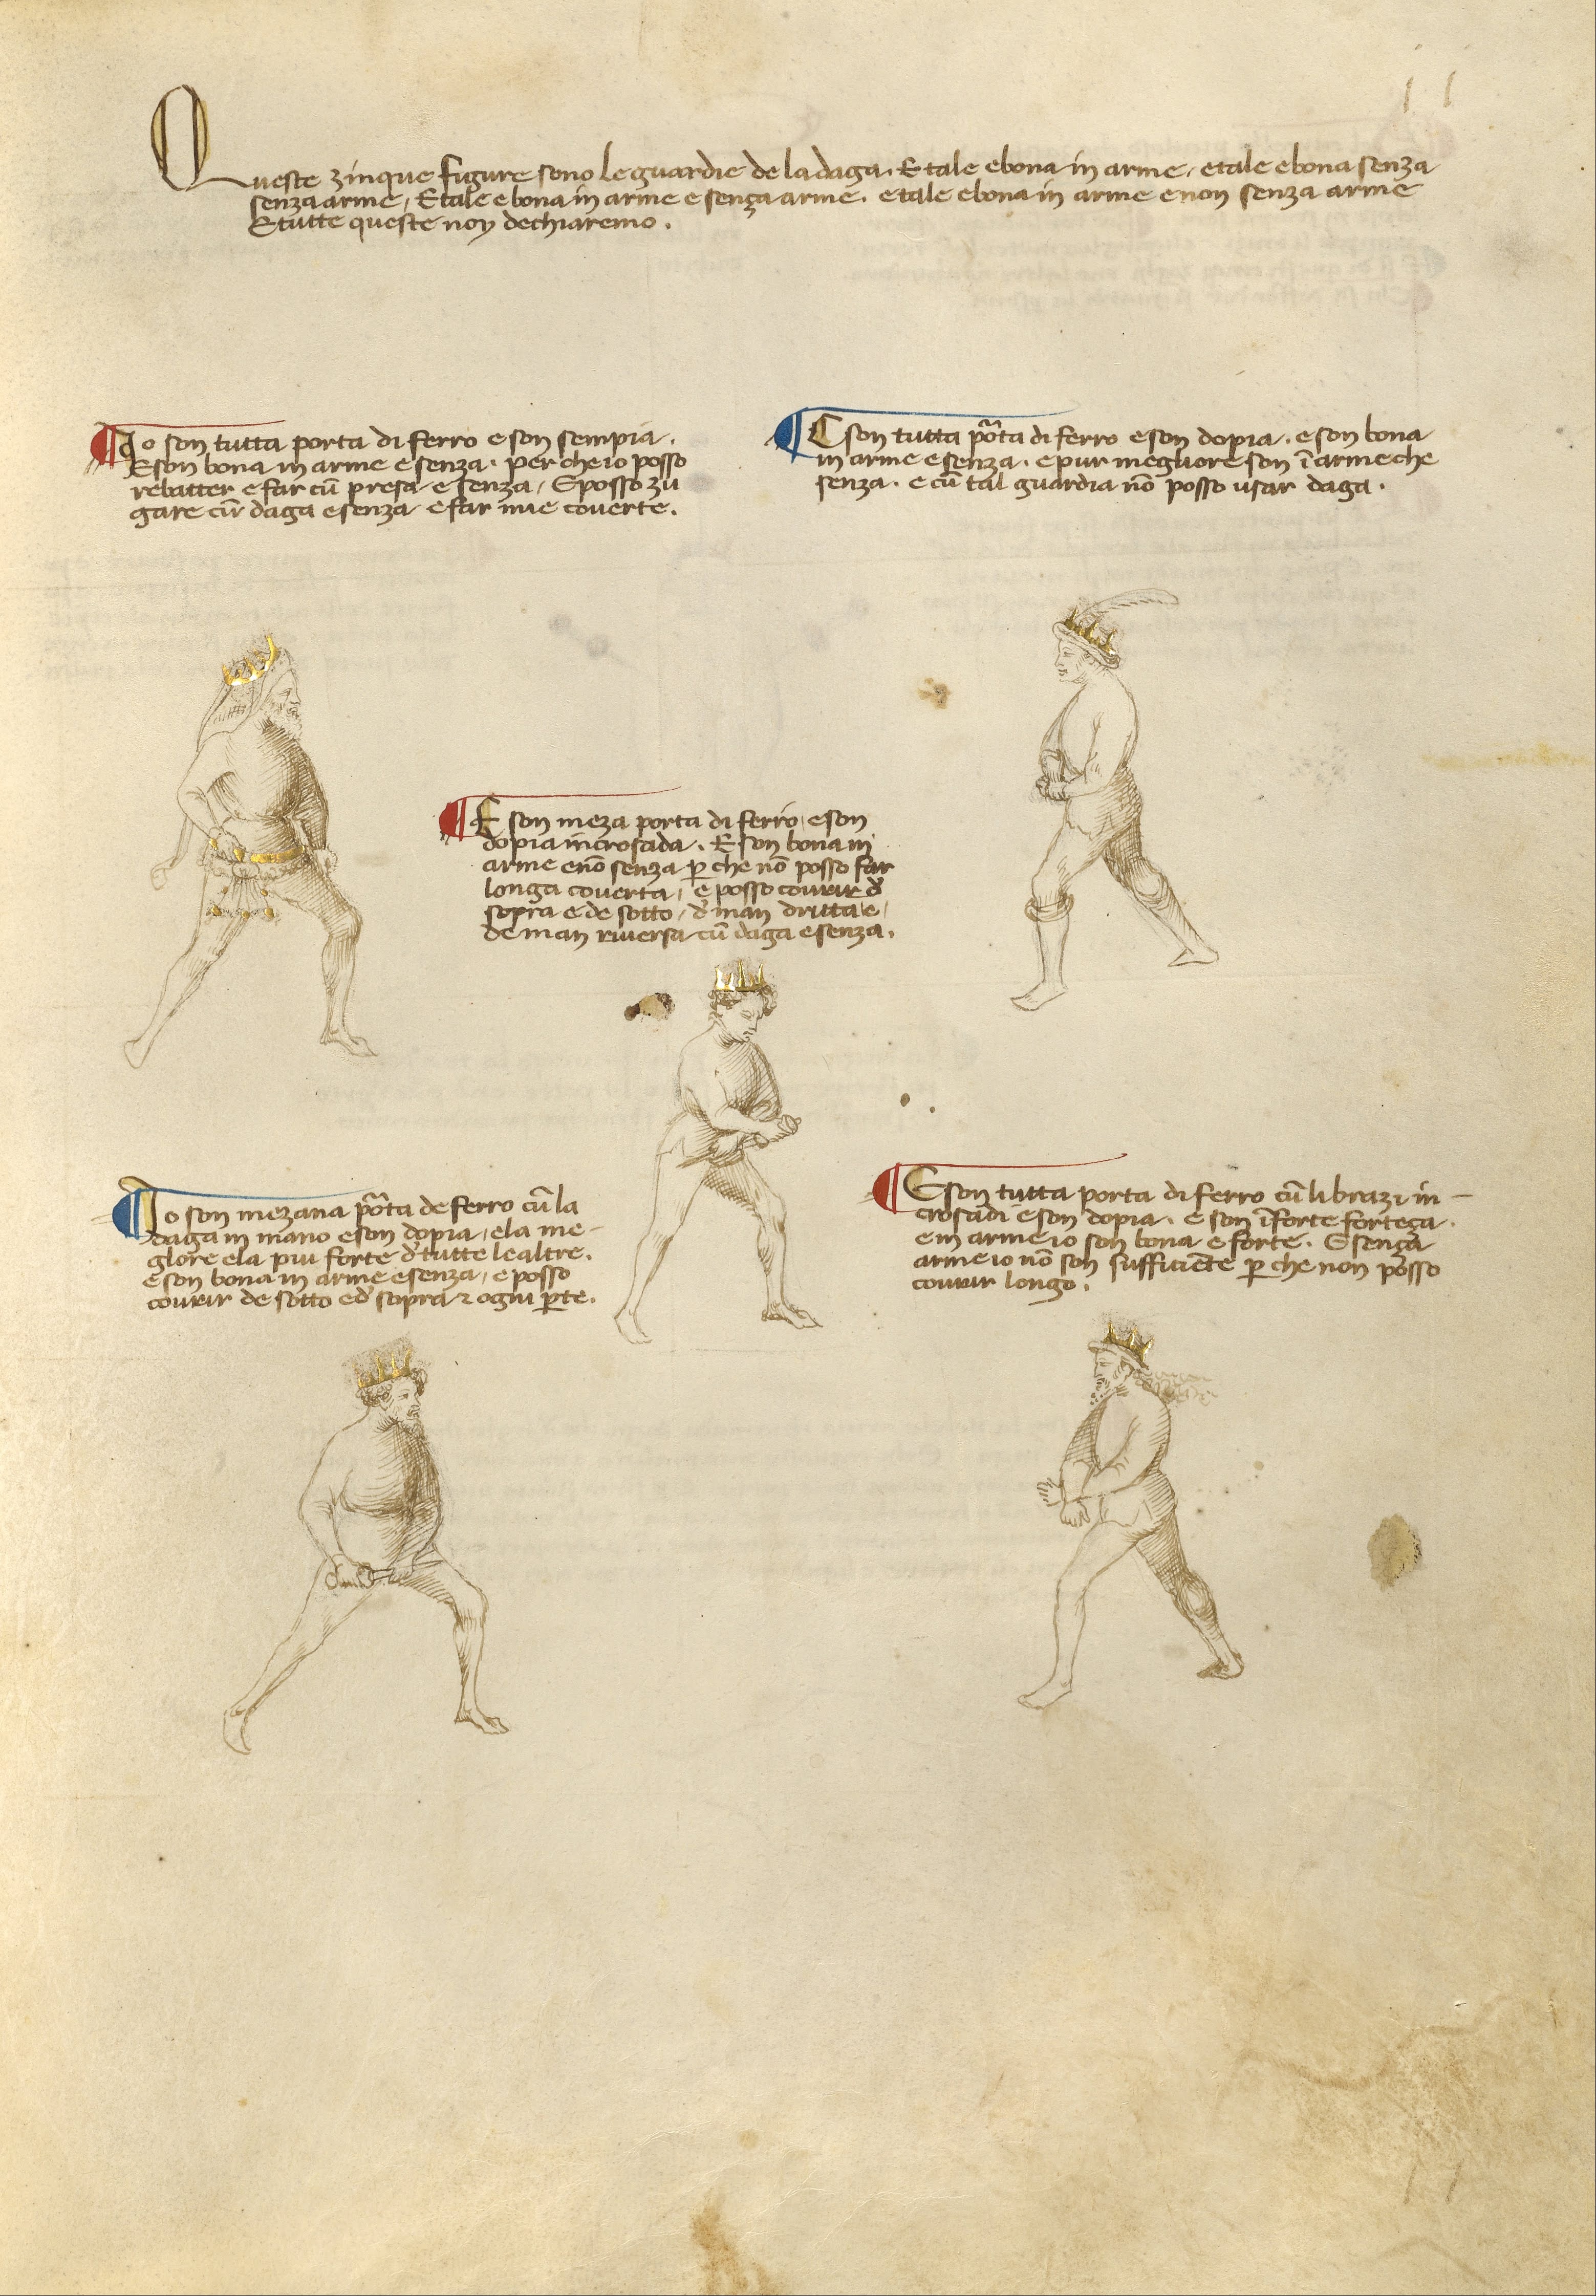 11
Queste zinque figure sono le guardie de la daga. E tale e bona in arme, e tale e bona senza
senza arme, E tale e bona in arme e sença arme. e tale e bona in arme e non senza arme
E tutte queste noy dechiaremo.
Io son tutta porta di ferro e son sempia.
E son bona in arme e senza. per che io posso
rebatter e far cũ presa e senza, E posso zu
gare cũ daga e senza e far mie coverte.
E son tutta p̃ota di ferro e son dopia. e son bona
in arme e senza. e pur megliore son ĩ arme che
senza. e cũ tal guardia nõ posso usar daga.
E son meza porta di ferro, e son
dopia incrosada. E son bona in
arme e nõ senza ꝑ che nõ posso far
longa coverta, e posso covrir d̓
sopra e de sotto, d̓ man dritta e,
de man riversa cũ daga e senza.
Io son mezana p̃ota de ferro cũ la
daga in mano e son dopia, e la me-
glore e la piu forte d̓ tutte le altre.
e son bona in arme e senza, e posso
covrir de sotto e d̓ sopra ⁊ ogni ꝑte.
E son tutta porta di ferro cũ li brazi in-
crosadi e son dopia. e son ĩ forte forteça.
e in arme io son bona e forte. E sença
arme io nõ son sufficiẽte ꝑ che non posso
covrir longo.